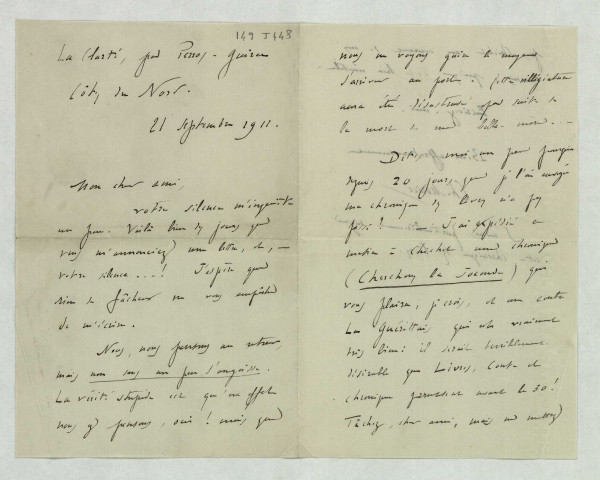 149 T448
La Clarté, par Perros-Guirec
Côtes du Nord.
21 septembre 1911.
Mon cher ami,
votre silence m'inquiète
un peu. Voilà bien des jours que
vous m'annonciez une lettre, et, —
votre silence...! J'espère que
rien de fâcheux ne vous empêche
de m'écrire.
Nous, nous pensons au retour,
mais non sans un peu d'angoisse.
La vérité stupide est qu'en effet
nous y pensons, oui! mais que
nous ne voyons guère le moyen
d'arriver au port. Cette villégiature
aura été désastreuse par suite de
la mort de ma belle-mère. —
Dites-moi un peu pourquoi
depuis 20 jours que je l'ai envoyée
ma chronique des livres n'a pas
passé! — J'ai expédié ce
matin à une chronique
(Cherchons la Joconde) qui
vous plaira, je crois, et un conte
La qui est vraiment
très bien: il serait terriblement
désirable que Livres, Conte et
chronique passent avant le 30!
Tâchez, cher ami, mais ne mettez